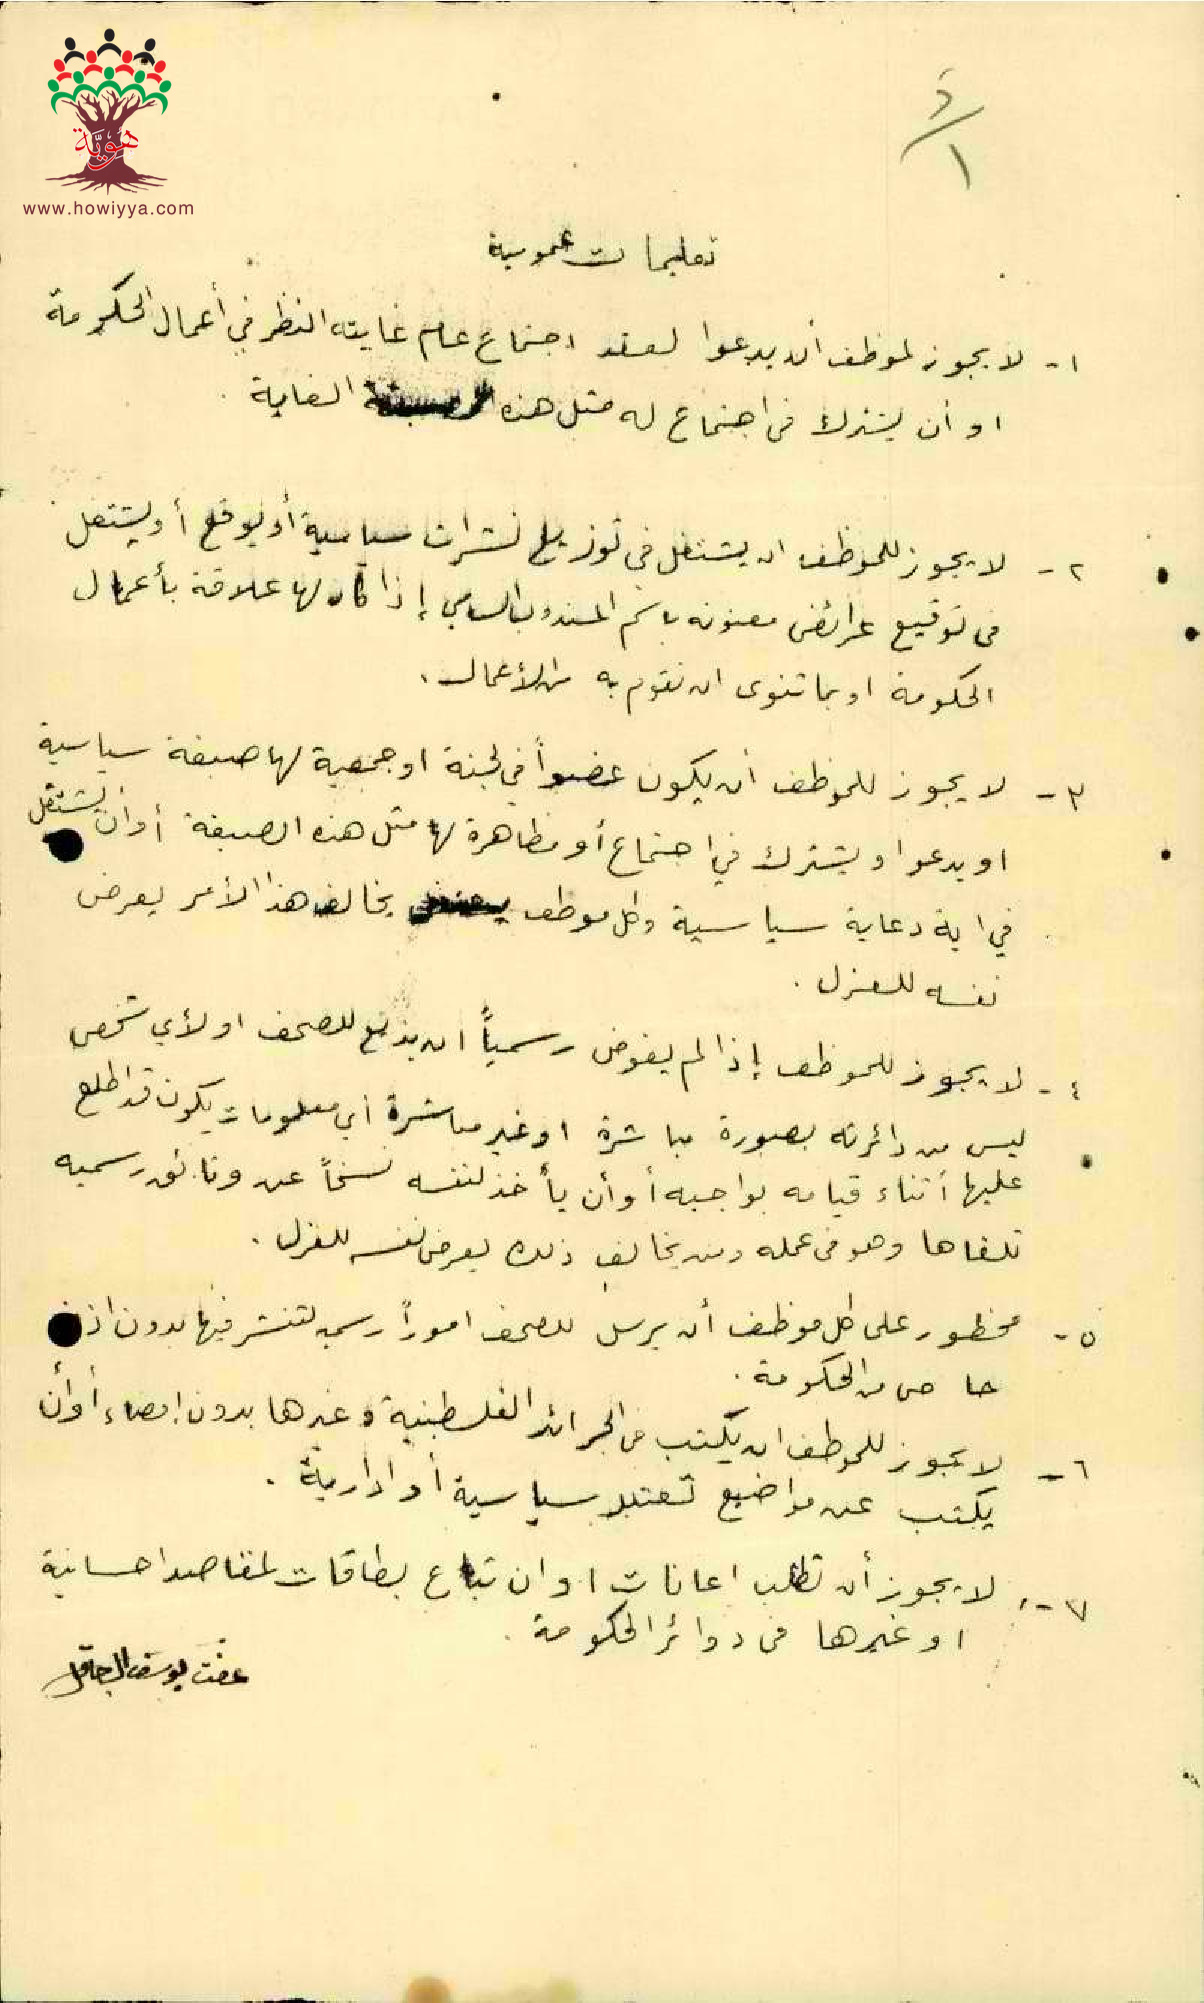 هوية
www.howiyya.com
١
تعليمات عمومية
١- لا يجوز لموظف أن يدعوا لعقد اجتماع عام غايته النظر في أعمال الحكومة
او أن يشترك في اجتماع له مثل هذه الغاية .
٢- لا يجوز للموظف ان يشتغل في توزيع نشرات سياسية أو يوقع أو يشتغل
في توقيع عرائض معنونه باسم المندوب السامي إذا كان لها علاقة بأعمال
الحكومة او بما تنوى ان تقوم به من الأعمال .
٣- لا يجوز للموظف أن يكون عضواً في لجنة او جمعية لها صبغة سياسية
او يدعوا ويشترك في اجتماع أو مظاهرة لها مثل هذه الصبغة أو ان يشتغل
في اية دعاية سياسية وكل موظف يخالف هذا الأمر يعرض
نفسه للعزل .
٤- لا يجوز للموظف إذا لم يفوض رسمياً ان يذيع للصحف او لأي شخص
ليس من دائرته بصورة مباشرة او غير مباشرة أي معلومات يكون قد اطلع
عليها أثناء قيامه بواجبه أو أن يأخذ لنفسه نسخاً عن وثائق رسميه
تلقاها وهو في عمله ومن يخالف ذلك يعرض نفسه للعزل .
٥- محظور على كل موظف أن يرسل للصحف اموراً رسميه لتنشر فيها بدون اذن
خاص من الحكومة .
٦- لا يجوز للموظف ان يكتب في الجرائد الفلسطينية وغيرها بدون إمضاء أو أن
يكتب عن مواضيع تعتبر سياسية أو ادارية .
٧- لا يجوز أن تطلب اعانات او ان تباع بطاقات لمقاصد احسانية
او غيرها في دوائر الحكومة .
عفت يوسف